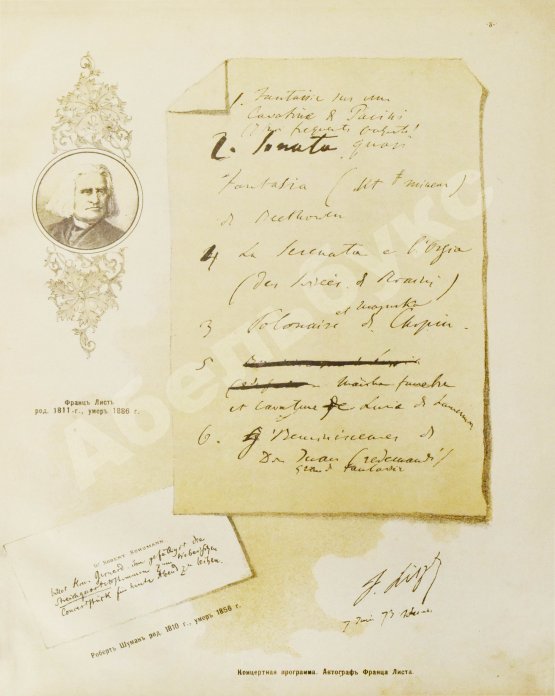 - 8 -
1. Fantaisie sur une
Cavatine de Pacini
(I tuoi frequenti
2. Sonata quasi
Fantasia (dit # mineur)
di Beethoven
4 La Serenata e l'Orgia
(des Soirées d. Rossini)
et Mazurka
3 Polonaise d. Chopin.
5
Marche funèbre
et Cavatine de Lucia di Lammermoor
6. Reminiscences d
Don Juan (redemandé)
Grand Fantaisie
Францъ Листъ
род. 1811 г., умеръ 1886 г.
Dr ROBERT SCHUMANN
Herr
für heute Abend zu leihen.
Робертъ Шуманъ род. 1810 г., умеръ 1856 г.
F. Liszt
7
Концертная программа. Автографъ Франца Листа.
Абельбукс